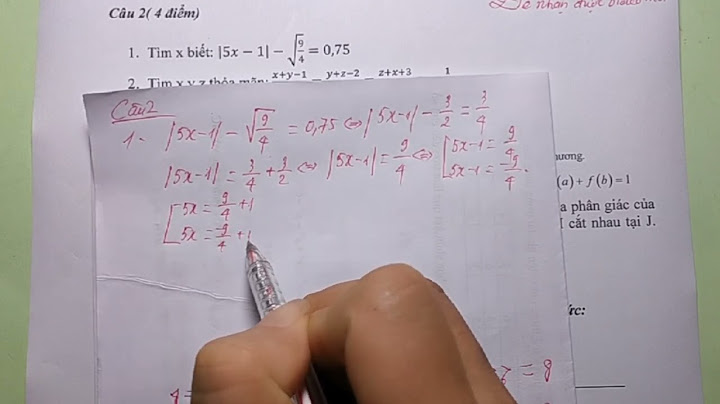 Câu 2( 4 điểm)
1. Tìm x biết: |5x − 1| − √(9/4) = 0,75
2. Tìm x y z thỏa mãn: x+y−1 y+z−2 z+x+3 1
Câu 2
1. |5x-1| - √(9/4) = 0,75 ⇔ |5x-1| - 3/2 = 3/4
|5x-1| = 3/4 + 3/2 ⇔ |5x-1| = 9/4 ⇔ [5x-1 = 9/4
5x-1 = -9/4.
[5x = 9/4 + 1
5x = -9/4 + 1
ương.
(a) + f(b) = 1
a phân giác của
I cắt nhau tại J.
ức:
= 8